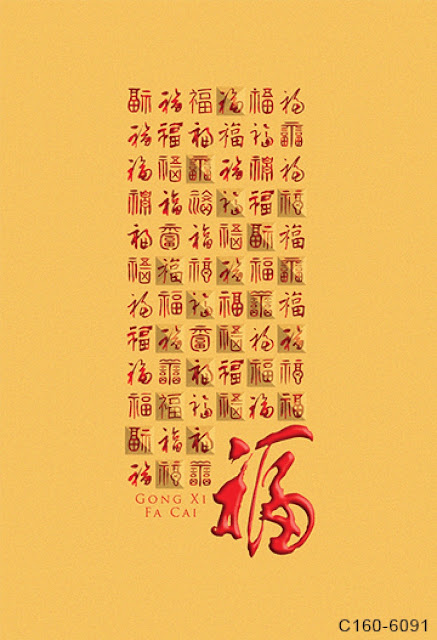 福福福福福福
福福福福福福
福福福福福福
福福福福福福
福福福福福福
福福福福福福
福福福福福福
福福福福福福
福福福福福福
福福福福福福
福福福
福福福
福
Gong Xi
Fa Cai
C160-6091